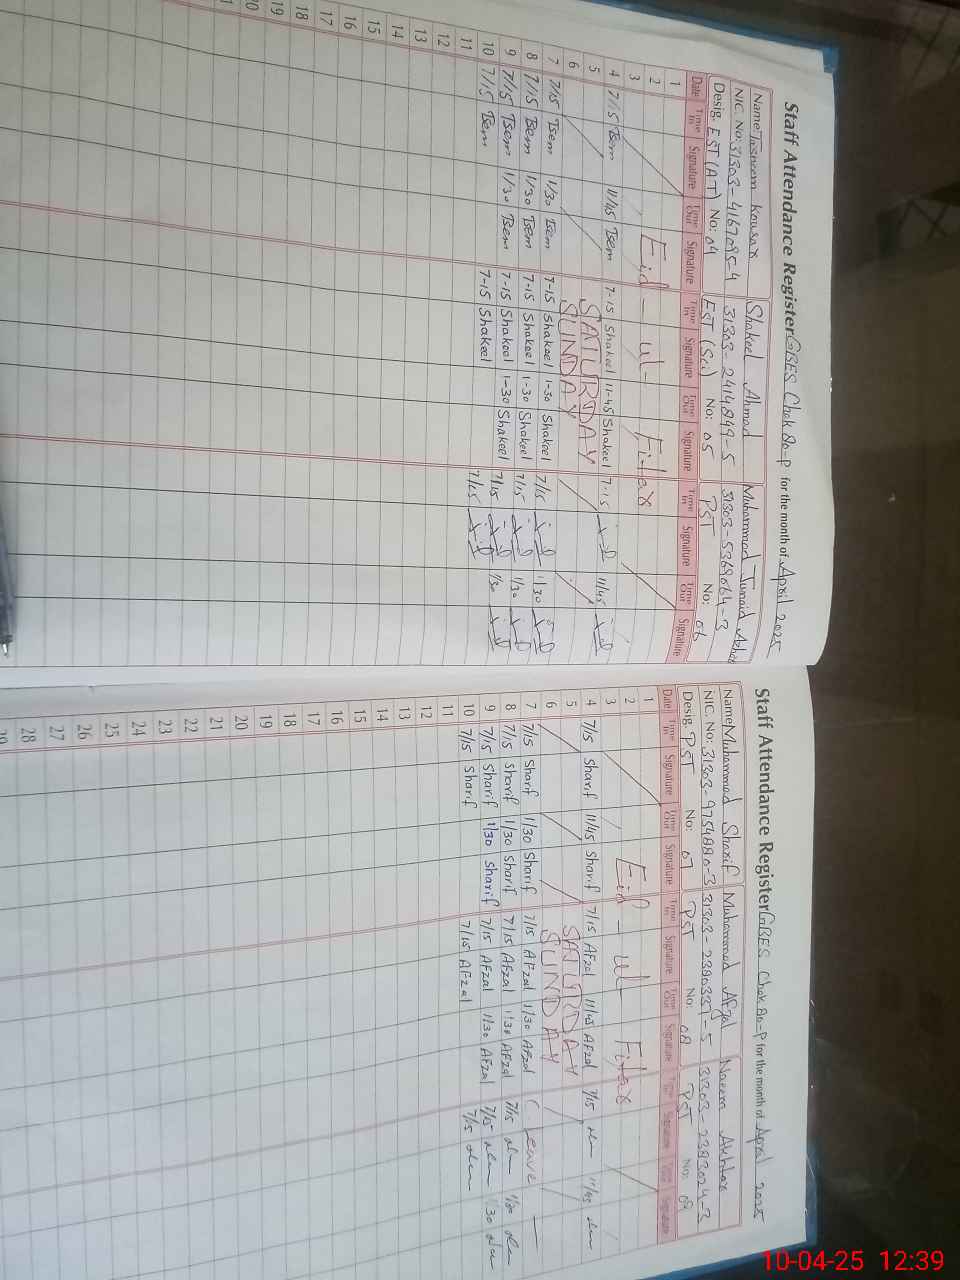 Staff Attendance Register GBES Chak 80=P for the month of April 2025
Name Tasneem Kousar Shakeel Ahmad Muhammad Junaid Azhar
NIC. No: 31303-4167095-4 31303-2414849-5 31303-5369064-3
Desig. EST (AT) No: 04 EST (Sci) No: 05 PST No: 06
Date Time In Signature Time Out Signature Time In Signature Time Out Signature Time In Signature Time Out Signature
1
2 Eid - ul - Fitar
3
4 7/15 Tsem 11/45 Tsem 7-15 Shakeel 11-45 Shakeel 7-15 11/45
5 SATURDAY
6 SUNDAY
7 7/15 Tsem 1/30 Tsem 7-15 Shakeel 1-30 Shakeel 7/15 1/30
8 7/15 Tsem 1/30 Tsem 7-15 Shakeel 1-30 Shakeel 7/15 1/30
9 7/15 Tsem 1/30 Tsem 7-15 Shakeel 1-30 Shakeel 7/15 1/30
10 7/15 Tsem 7-15 Shakeel 7/15
11
12
13
14
15
16
17
18
19
20
Staff Attendance Register GBES Chak 80=P for the month of April 2025
Name Muhammad Sharif Muhammad Afzal Naeem Akhtar
NIC. No: 31303-9754880-3 31303-2390337-5 31303-2383024-3
Desig. PST No: 07 PST No: 08 PST No: 09
Date Time In Signature Time Out Signature Time In Signature Time Out Signature Time In Signature Time Out Signature
1
2 Eid - ul - Fitar
3
4 7/15 Sharif 11/45 Sharif 7/15 AFzal 11/45 AFzal 7/15 11/45
5 SATURDAY
6 SUNDAY
7 7/15 Sharif 1/30 Sharif 7/15 AFzal 1/30 AFzal Leave
8 7/15 Sharif 1/30 Sharif 7/15 AFzal 1/30 AFzal 7/15 1/30
9 7/15 Sharif 1/30 Sharif 7/15 AFzal 1/30 AFzal 7/15 1/30
10 7/15 Sharif 7/15 AFzal 7/15
11
12
13
14
15
16
17
18
19
20
21
22
23
24
25
26
27
28
29
10-04-25 12:39